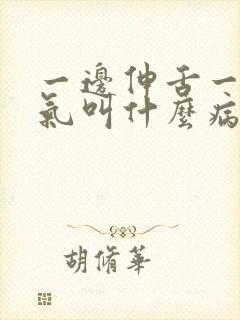 一邊伸舌一
氣叫什麼病
胡脩華